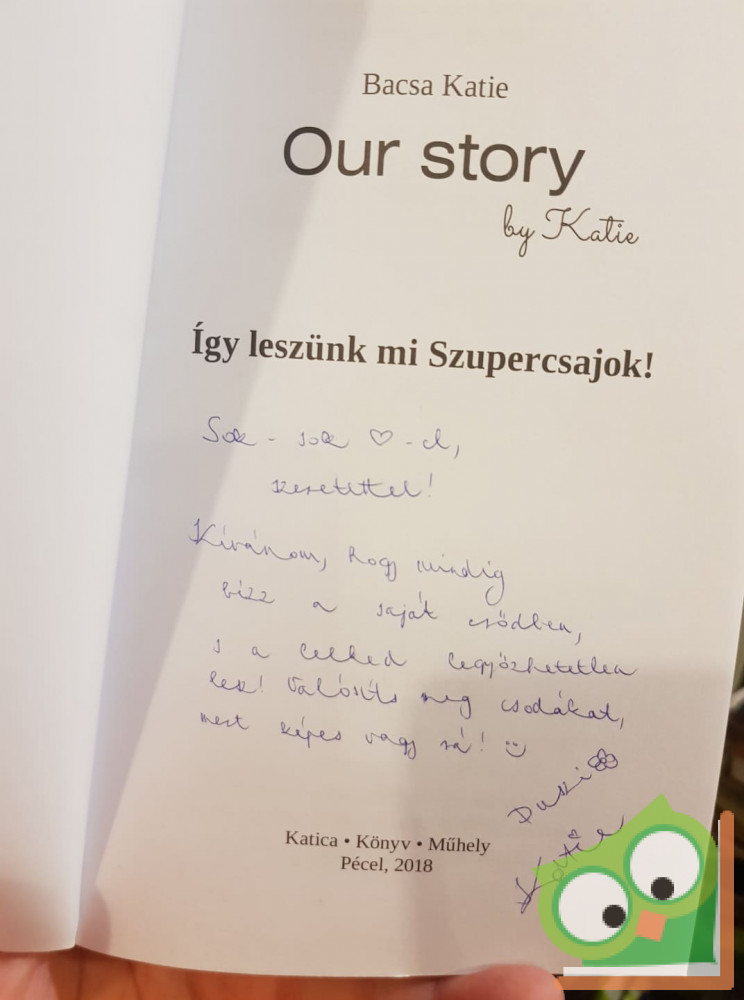 Bacsa Katie
Our story
by Katie
Így leszünk mi Szupercsajok!
Sok - sok ♡ - el,
szeretettel!
Kívánom, hogy mindig
bízz a saját erődben,
s a lelked legyőzhetetlen
lesz! Valósíts meg csodákat,
mert képes vagy rá! :)
Puszi
Katie
Katica • Könyv • Műhely
Pécel, 2018